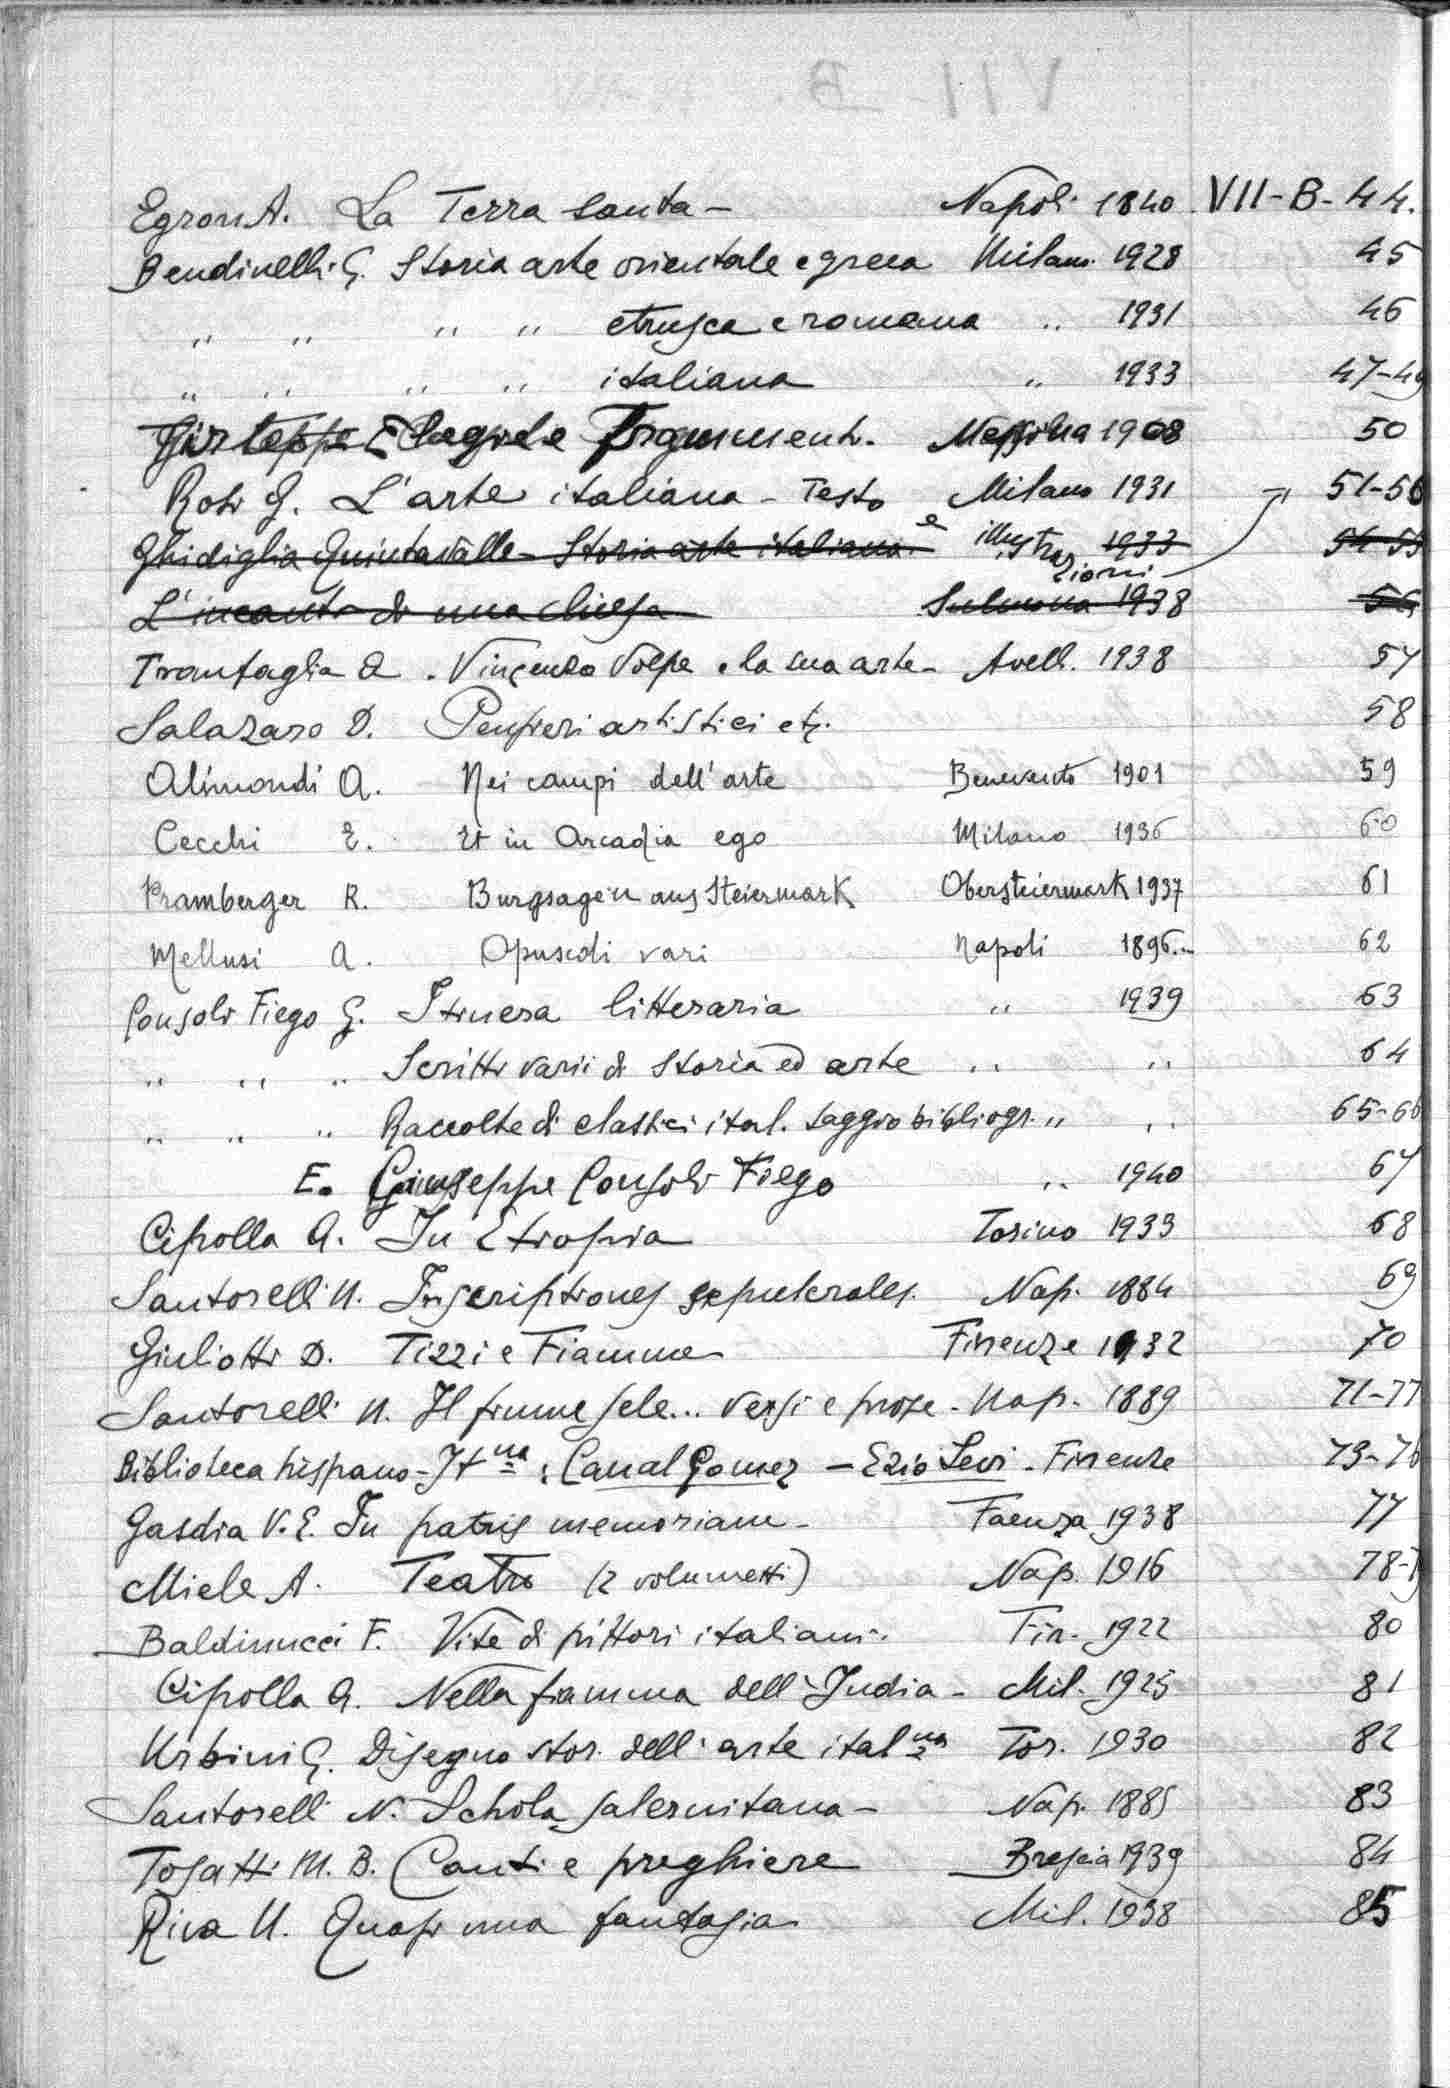 Egron A. La Terra Santa - Napoli 1840 VII-B-44.
Bendinelli G. Storia arte orientale e greca Milano 1928 45
" " " " etrusca e romana " 1931 46
" " " " italiana " 1933 47-49
Frammenti. Messina 1908 50
Rosi G. L'arte italiana - Testo Milano 1931 51-56
Ghidiglia Quintavalle - Storia arte italiana e illustrazioni 1933 54-55
L'incanto di una chiesa Sulmona 1938 56
Trontaglia A. Vincenzo Volpe e la sua arte - Avell. 1938 57
Salazaro D. Pensieri artistici etc. 58
Alimondi A. Nei campi dell'arte Benevento 1901 59
Cecchi E. Et in Arcadia ego Milano 1936 60
Pramberger R. Burgsagen aus Steiermark Obersteiermark 1937 61
Mellusi A. Opuscoli vari Napoli 1896.. 62
Consoli Fiego G. Itinera litteraria " 1939 63
" " " Scritti varii di Storia ed arte " " 64
" " " Raccolte di classici ital. saggio bibliogr. " " 65-66
E. Giuseppe Consoli Fiego " 1940 67
Cipolla A. In Etiopia Torino 1933 68
Santorelli N. Inscriptiones sepulcrales. Nap. 1884 69
Giuliotti D. Tizzi e Fiamme Firenze 1932 70
Santorelli N. Il fiume Sele... Versi e prose - Nap. 1889 71-77
Biblioteca hispano-Itna : Canal Gomez - Ezio Levi - Firenze 73-76
Gasdia V. E. In patris memoriam - Faenza 1938 77
Miele A. Teatro (2 volumetti) Nap. 1916 78-79
Baldinucci F. Vite di pittori italiani. Fir. 1922 80
Cipolla A. Nella fiamma dell'India - Mil. 1925 81
Urbini G. Disegno stor. dell'arte italna Tor. 1930 82
Santorelli N. Schola salernitana - Nap. 1885 83
Tosatti M. B. Canti e preghiere Brescia 1939 84
Riva U. Quasi una fantasia Mil. 1938 85